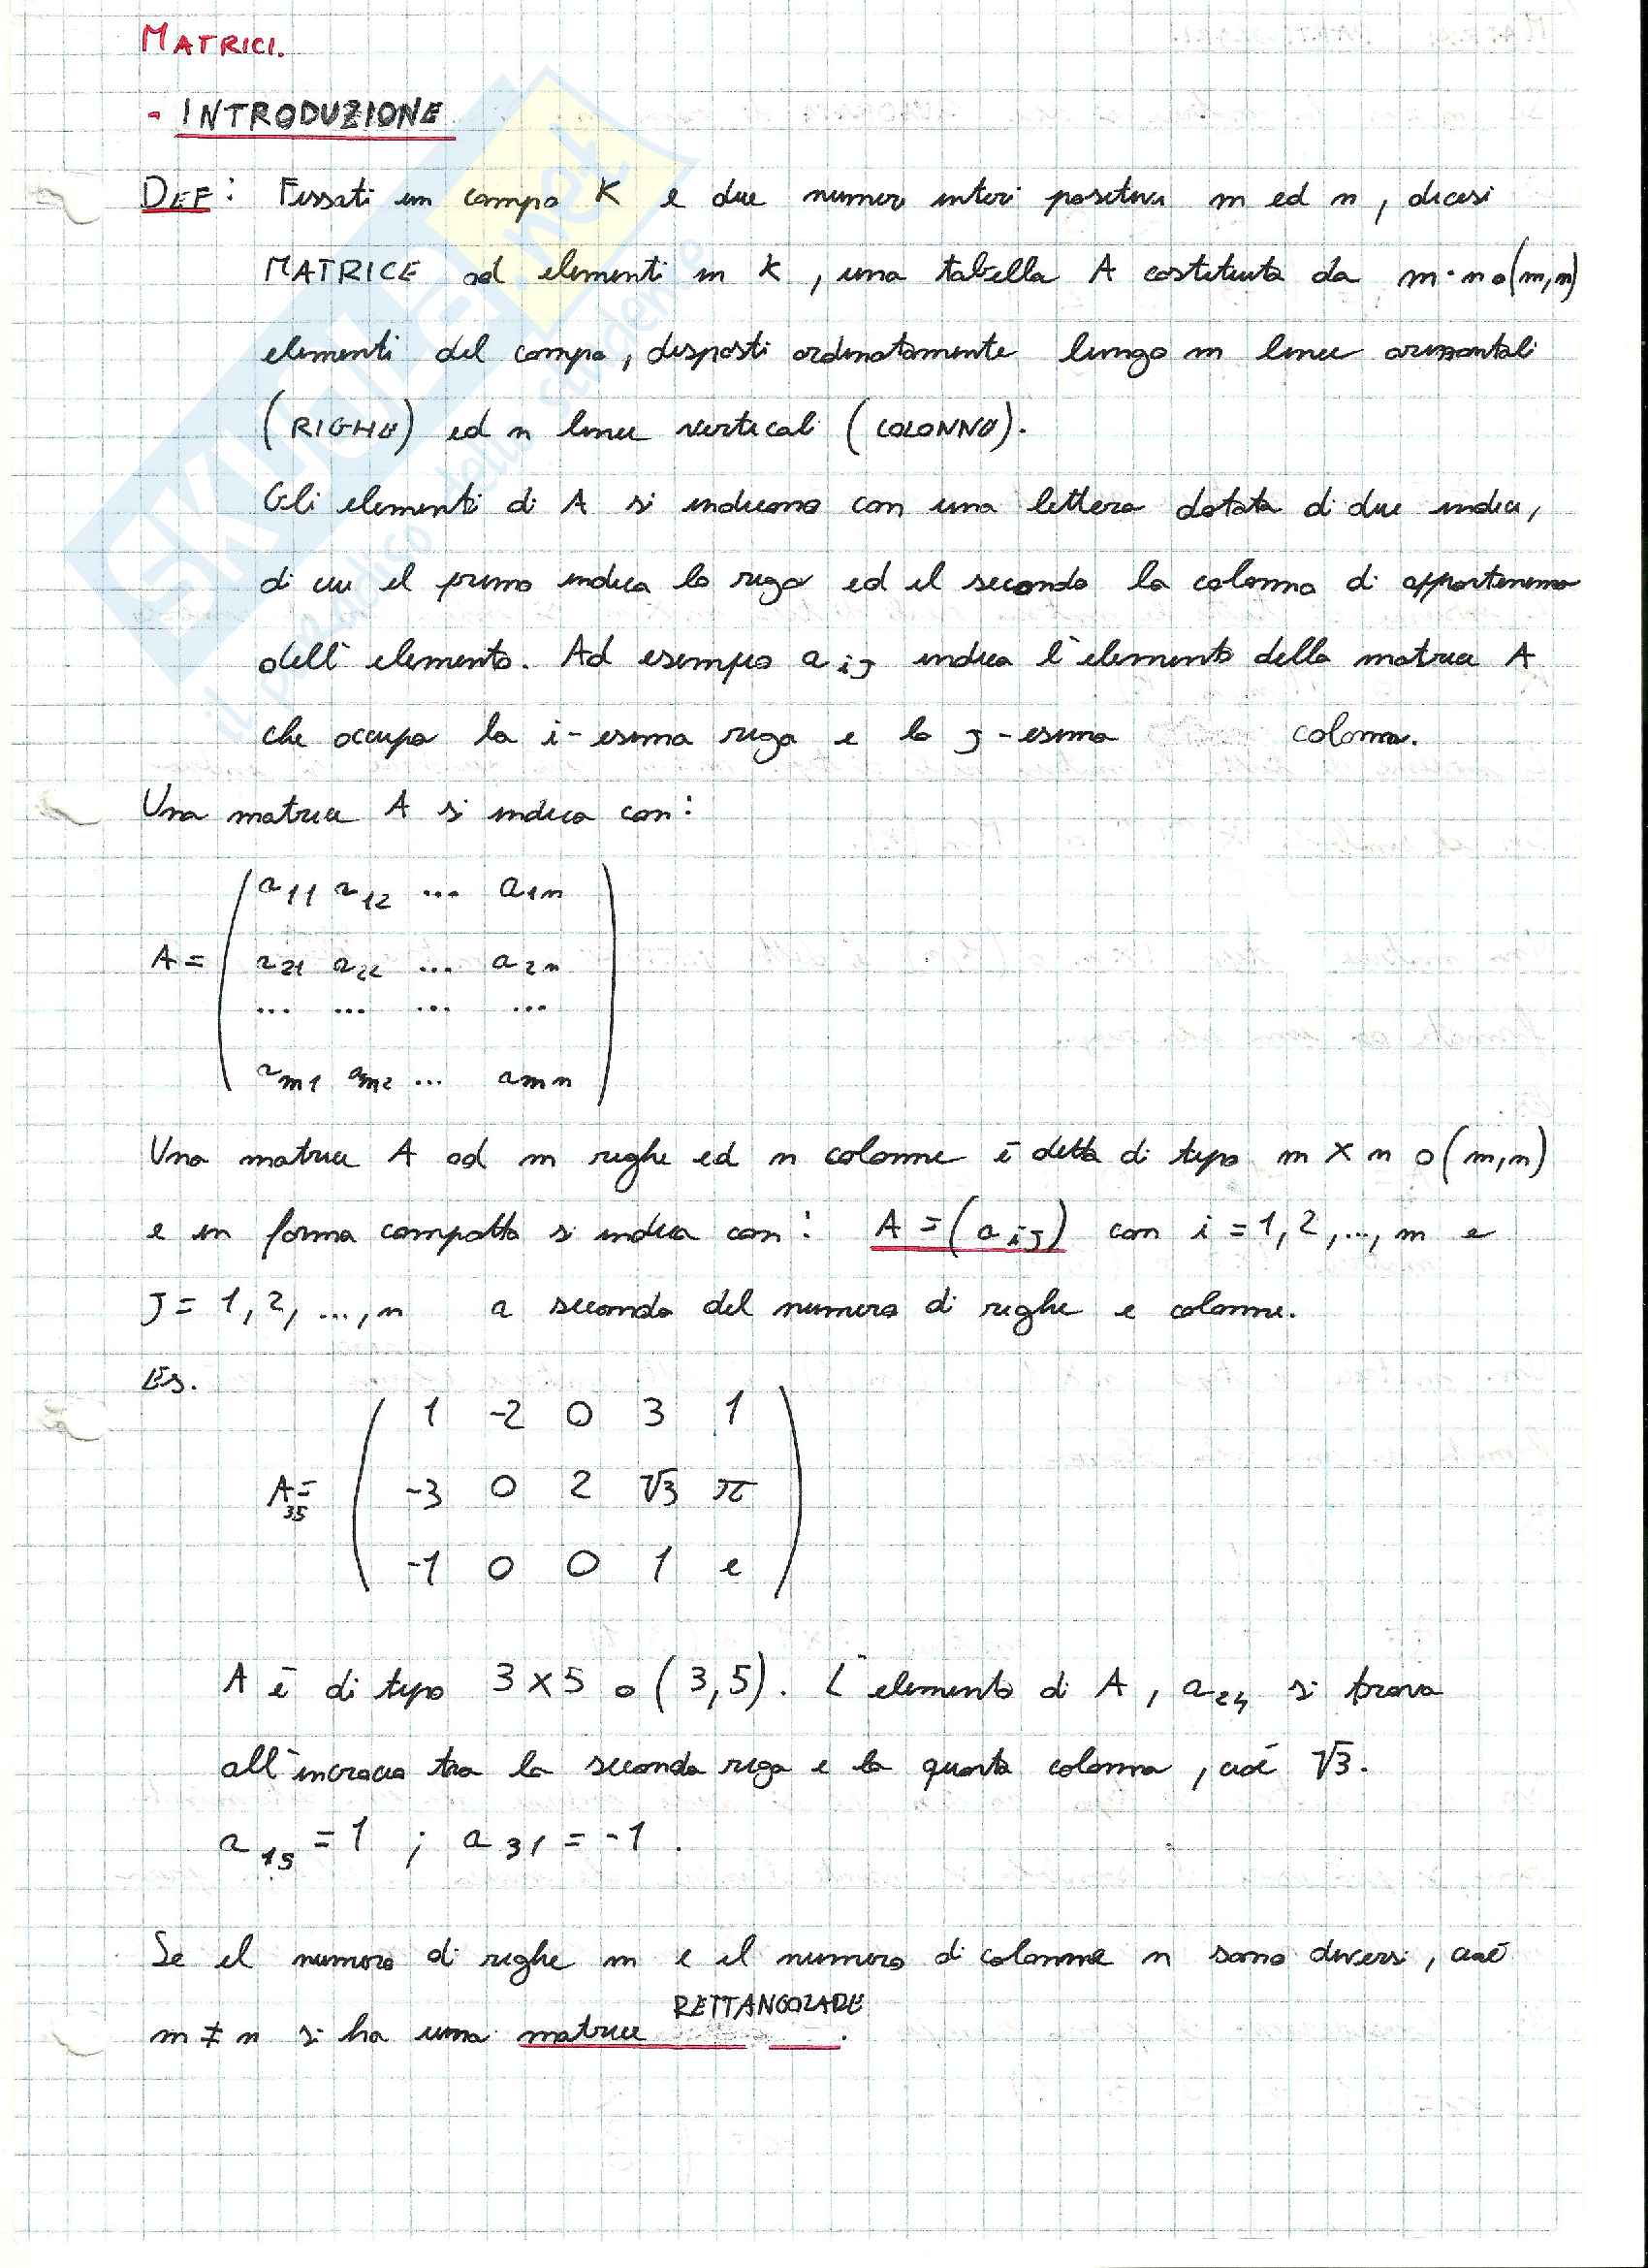 MATRICI.
- INTRODUZIONE
DEF: Fissati un campo K e due numeri interi positivi m ed n, dicesi
MATRICE ad elementi in K, una tabella A costituita da m·n o (m,n)
elementi del campo, disposti ordinatamente lungo m linee orizzontali
(RIGHE) ed n linee verticali (COLONNE).
Gli elementi di A si indicano con una lettera dotata di due indici,
di cui il primo indica la riga ed il secondo la colonna di appartenenza
dell'elemento. Ad esempio a_ij indica l'elemento della matrice A
che occupa la i-esima riga e la j-esima colonna.
Una matrice A si indica con:
a_11 a_12 ... a_1n
A = a_21 a_22 ... a_2n
... ... ... ...
a_m1 a_m2 ... a_mn
Una matrice A ad m righe ed n colonne è detta di tipo m x n o (m,n)
e in forma compatta si indica con: A = (a_ij) con i = 1, 2, ..., m e
J = 1, 2, ..., n a seconda del numero di righe e colonne.
Es.
1 -2 0 3 1
A_35 = -3 0 2 √3 π
-1 0 0 1 e
A è di tipo 3 x 5 o (3,5). L'elemento di A, a_24 si trova
all'incrocio tra la seconda riga e la quarta colonna, cioè √3.
a_15 = 1 ; a_31 = -1.
Se il numero di righe m e il numero di colonne n sono diversi, cioè
RETTANGOLARE
m ≠ n si ha una matrice .
SKUOLA.net